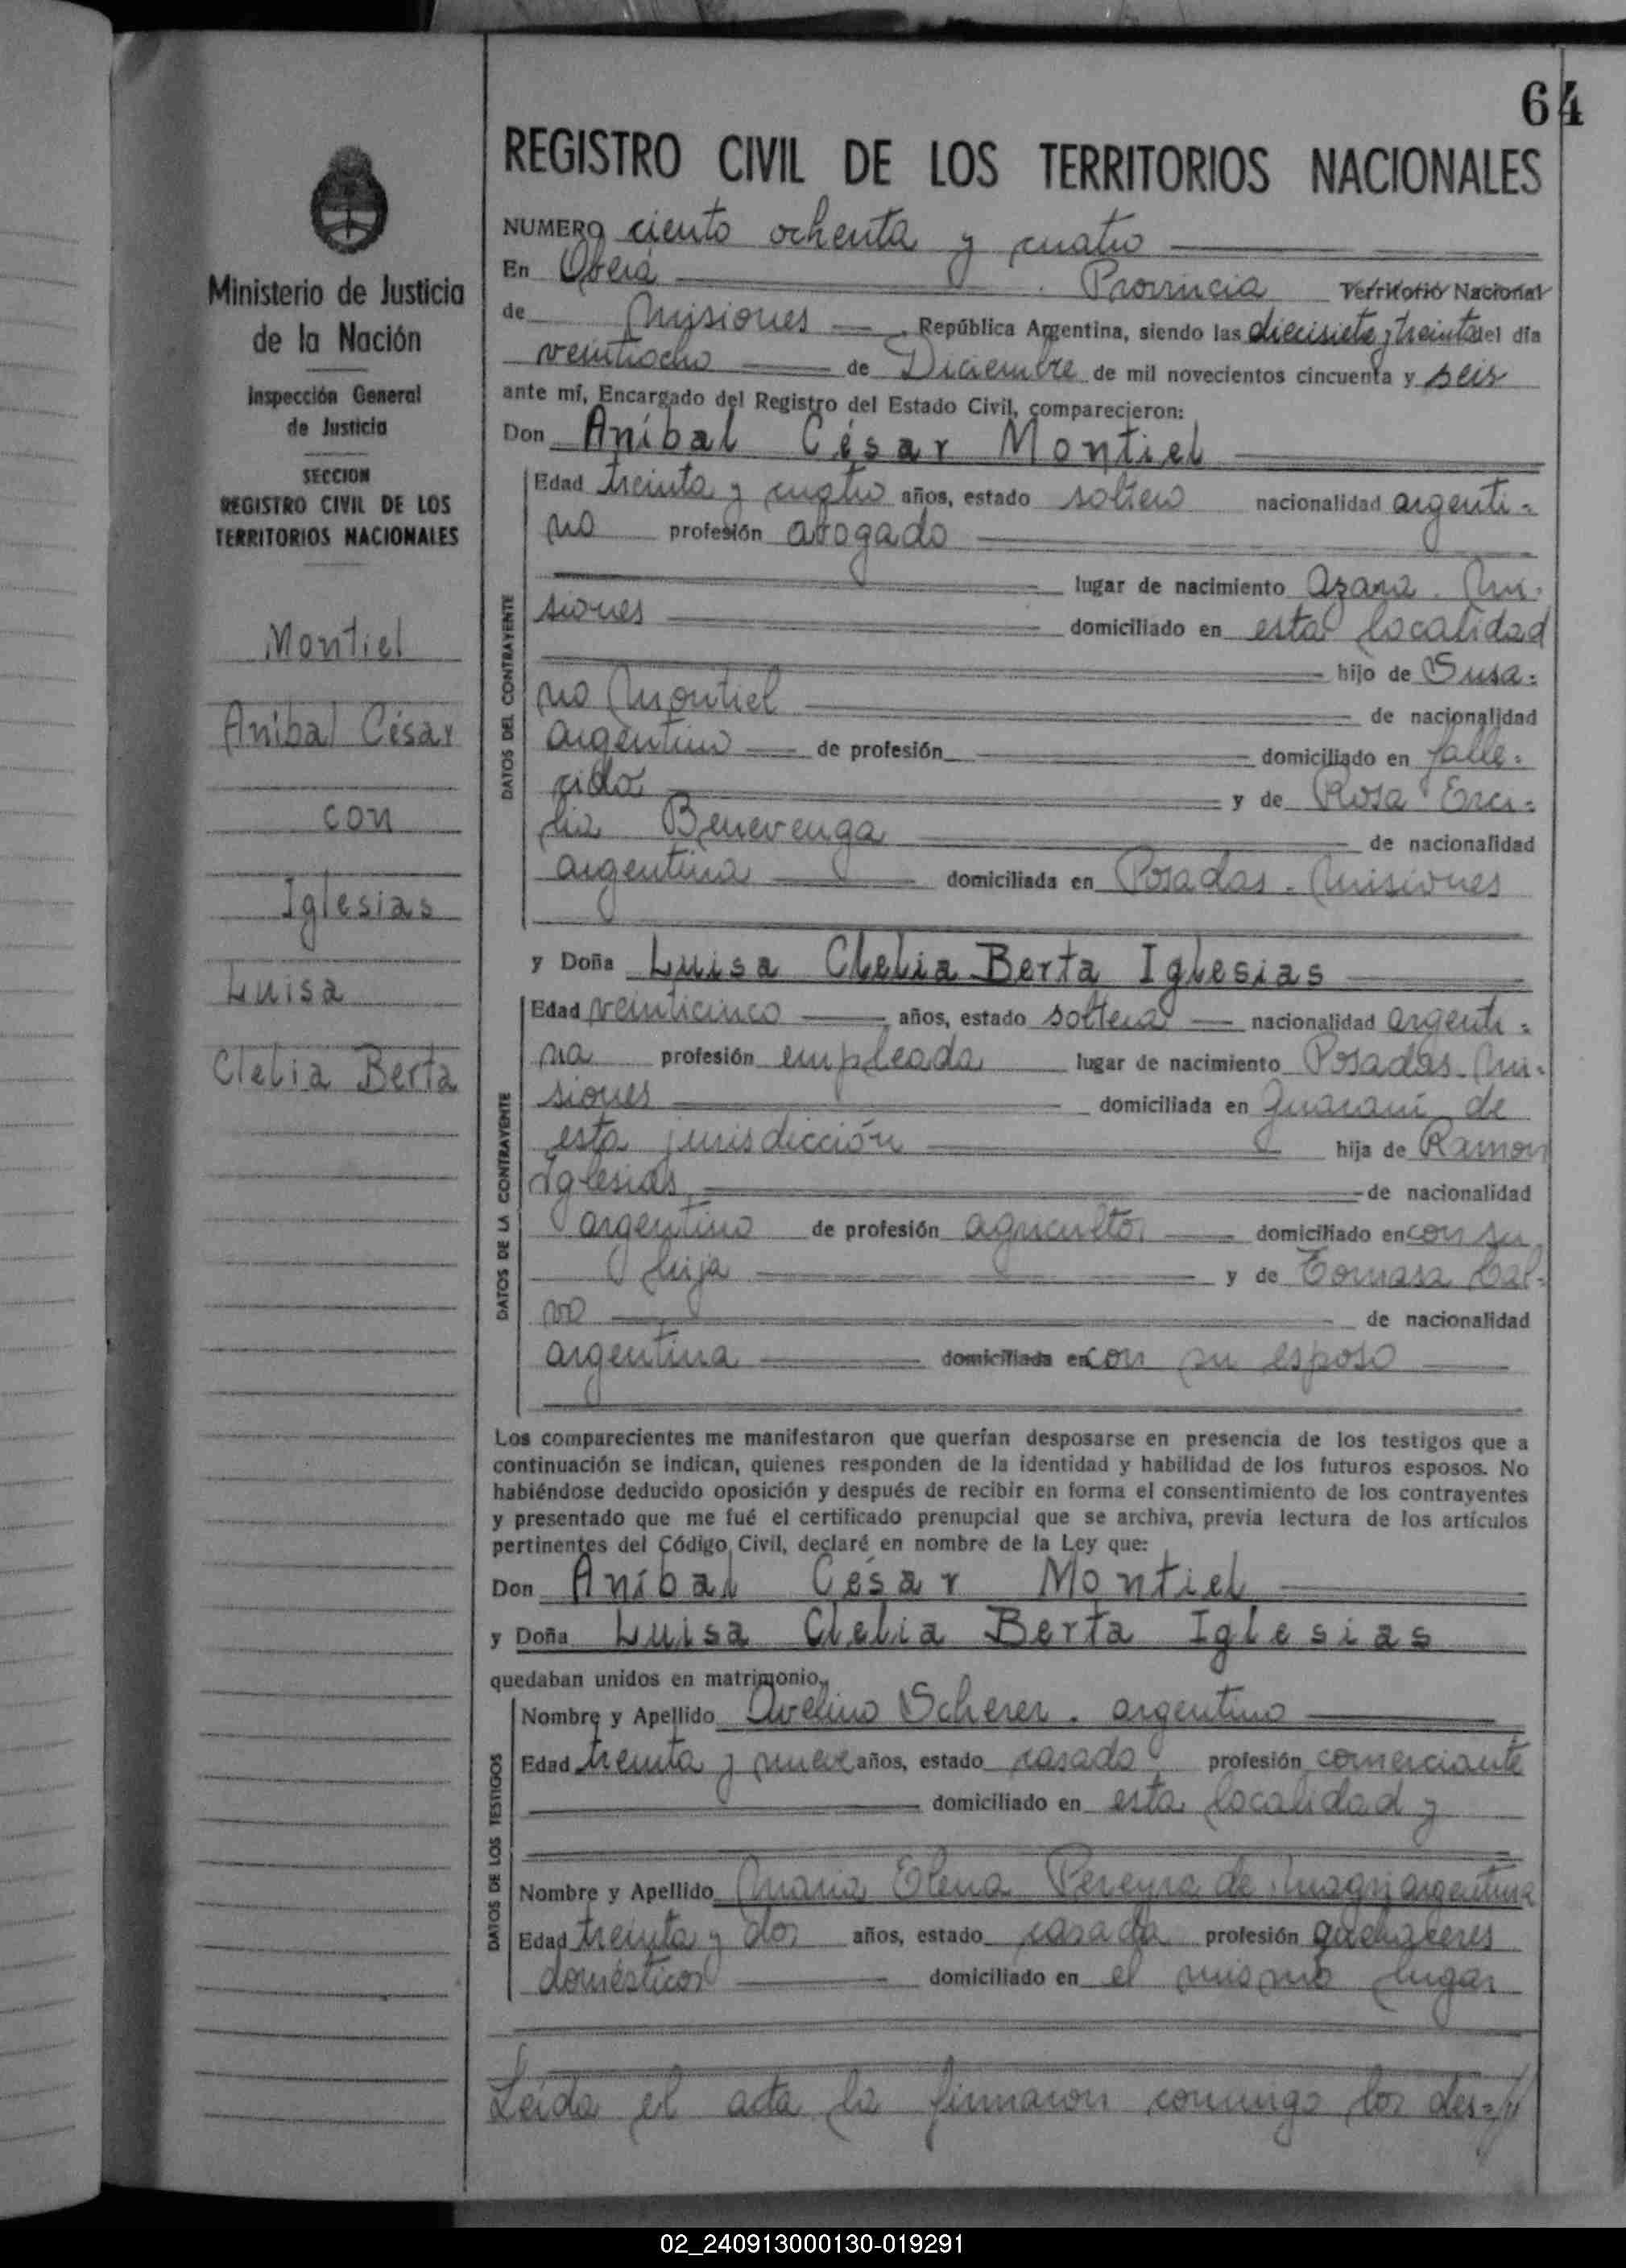 64
Ministerio de Justicia
de la Nación
Inspección General
de Justicia
SECCION
REGISTRO CIVIL DE LOS
TERRITORIOS NACIONALES
Montiel
Aníbal César
con
Iglesias
Luisa
Clelia Berta
REGISTRO CIVIL DE LOS TERRITORIOS NACIONALES
NUMERO ciento ochenta y cuatro
En Oberá Provincia Territorio Nacional
de Misiones República Argentina, siendo las diecisiete y treinta del día
veintiocho de Diciembre de mil novecientos cincuenta y seis
ante mí, Encargado del Registro del Estado Civil, comparecieron:
Don Aníbal César Montiel
DATOS DEL CONTRAYENTE
Edad treinta y cuatro años, estado soltero nacionalidad argenti=
no profesión abogado
lugar de nacimiento Azara. Mi-
siones domiciliado en esta localidad
hijo de Susa=
no Montiel de nacionalidad
argentino de profesión domiciliado en falle=
cido y de Rosa Erci=
lia Benevenga de nacionalidad
argentina domiciliada en Posadas. Misiones
y Doña Luisa Clelia Berta Iglesias
DATOS DE LA CONTRAYENTE
Edad veinticinco años, estado soltera nacionalidad argenti=
na profesión empleada lugar de nacimiento Posadas. Mi-
siones domiciliada en Guaraní de
esta jurisdicción hija de Ramon
Iglesias de nacionalidad
argentino de profesión agricultor domiciliado en con su
hija y de Tomasa Cal=
vo de nacionalidad
argentina domiciliada en con su esposo
Los comparecientes me manifestaron que querían desposarse en presencia de los testigos que a
continuación se indican, quienes responden de la identidad y habilidad de los futuros esposos. No
habiéndose deducido oposición y después de recibir en forma el consentimiento de los contrayentes
y presentado que me fué el certificado prenupcial que se archiva, previa lectura de los artículos
pertinentes del Código Civil, declaré en nombre de la Ley que:
Don Aníbal César Montiel
y Doña Luisa Clelia Berta Iglesias
quedaban unidos en matrimonio.
DATOS DE LOS TESTIGOS
Nombre y Apellido Avelino Scherer. argentino
Edad treinta y nueve años, estado casado profesión comerciante
domiciliado en esta localidad y
Nombre y Apellido Maria Elena Pereyra de argentina
Edad treinta y dos años, estado casada profesión quehaceres
domésticos domiciliado en el mismo lugar
Leída el acta la firmaron conmigo los des=//
02_240913000130-019291